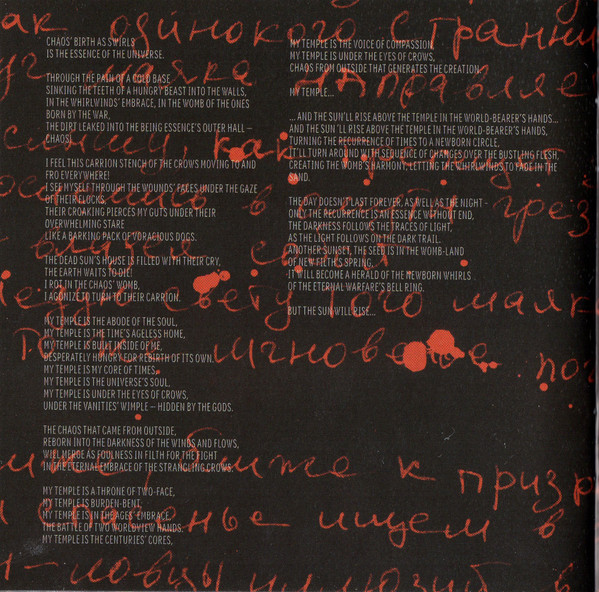 CHAOS' BIRTH AS SWIRLS
IS THE ESSENCE OF THE UNIVERSE.
THROUGH THE PAIN OF A COLD BASE
SINKING THE TEETH OF A HUNGRY BEAST INTO THE WALLS,
IN THE WHIRLWINDS' EMBRACE, IN THE WOMB OF THE ONES
BORN BY THE WAR,
THE DIRT LEAKED INTO THE BEING ESSENCE'S OUTER HALL –
CHAOS!
I FEEL THIS CARRION STENCH OF THE CROWS MOVING TO AND
FRO EVERYWHERE!
I SEE MYSELF THROUGH THE WOUNDS' FACES UNDER THE GAZE
OF THEIR FLOCKS.
THEIR CROAKING PIERCES MY GUTS UNDER THEIR
OVERWHELMING STARE
LIKE A BARKING PACK OF VORACIOUS DOGS.
THE DEAD SUN'S HOUSE IS FILLED WITH THEIR CRY,
THE EARTH WAITS TO DIE!
I ROT IN THE CHAOS' WOMB,
I AGONIZE TO TURN TO THEIR CARRION.
MY TEMPLE IS THE ABODE OF THE SOUL,
MY TEMPLE IS THE TIME'S AGELESS HOME,
MY TEMPLE IS BUILT INSIDE OF ME,
DESPERATELY HUNGRY FOR REBIRTH OF ITS OWN.
MY TEMPLE IS MY CORE OF TIMES,
MY TEMPLE IS THE UNIVERSE'S SOUL,
MY TEMPLE IS UNDER THE EYES OF CROWS,
UNDER THE VANITIES' WIMPLE – HIDDEN BY THE GODS.
THE CHAOS THAT CAME FROM OUTSIDE,
REBORN INTO THE DARKNESS OF THE WINDS AND FLOWS,
WILL MERGE AS FOULNESS IN FILTH FOR THE FIGHT
IN THE ETERNAL EMBRACE OF THE STRANGLING CROWS.
MY TEMPLE IS A THRONE OF TWO-FACE,
MY TEMPLE IS BURDEN-BENT,
MY TEMPLE IS IN THE AGES' EMBRACE,
THE BATTLE OF TWO WORLDVIEW HANDS.
MY TEMPLE IS THE CENTURIES' CORES,
MY TEMPLE IS THE VOICE OF COMPASSION,
MY TEMPLE IS UNDER THE EYES OF CROWS,
CHAOS FROM OUTSIDE THAT GENERATES THE CREATION.
MY TEMPLE...
... AND THE SUN'LL RISE ABOVE THE TEMPLE IN THE WORLD-BEARER'S HANDS...
AND THE SUN'LL RISE ABOVE THE TEMPLE IN THE WORLD-BEARER'S HANDS,
TURNING THE RECURRENCE OF TIMES TO A NEWBORN CIRCLE.
IT'LL TURN AROUND WITH SEQUENCE OF CHANGES OVER THE BUSTLING FLESH,
CREATING THE TOMB'S HARMONY, LETTING THE WHIRLWINDS TO FADE IN THE
SAND.
THE DAY DOESN'T LAST FOREVER, AS WELL AS THE NIGHT -
ONLY THE RECURRENCE IS AN ESSENCE WITHOUT END,
THE DARKNESS FOLLOWS THE TRACES OF LIGHT,
AS THE LIGHT FOLLOWS ON THE DARK TRAIL.
ANOTHER SUNSET, THE SEED IS IN THE WOMB-LAND
OF NEW FILTH'S SPRING,
IT WILL BECOME A HERALD OF THE NEWBORN WHIRLS
OF THE ETERNAL WARFARE'S BELL RING.
BUT THE SUN WILL RISE...
ак одинокого странни
маяка направляе
свету того маяка
мгновенье
ближе к призр
ищем в
ловцы иллюзий в